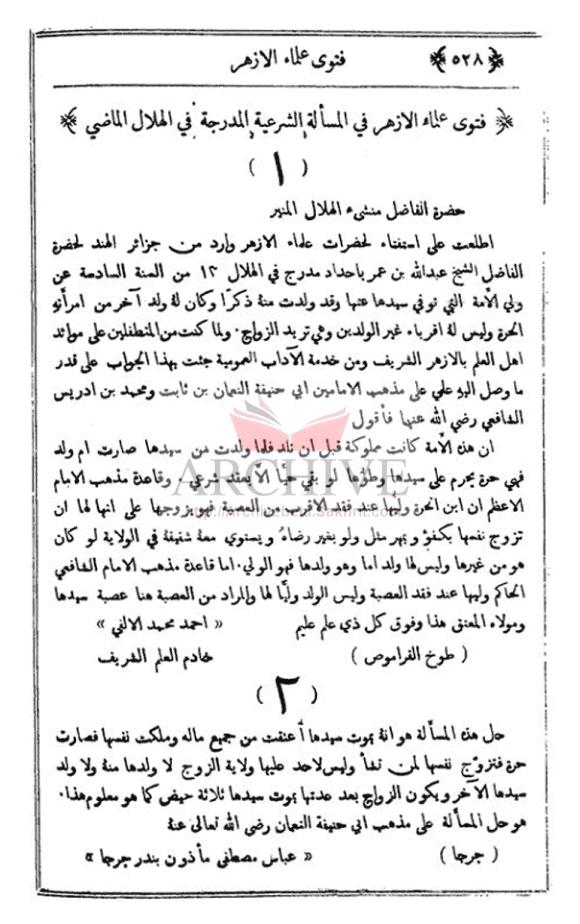 ﴿ ٥٢٨ ﴾ فتوى علماء الازهر
﴿ فتوى علماء الازهر في المسألة الشرعية المدرجة في الهلال الماضي ﴾
( ١ )
حضرة الفاضل منشىء الهلال المنير
اطلعت على استفتاء لحضرات علماء الازهر وارد من جزائر الهند لحضرة
الفاضل الشيخ عبدالله بن عمر باحداد مدرج في الهلال ١٢ من السنة السادسة عن
ولي الأمة التي توفي سيدها عنها وقد ولدت منهُ ذكرًا وكان لهُ ولد آخر من امرأتهِ
الحرة وليس لهُ اقرباء غير الولدين وهي تريد الزواج. ولما كنت من المتطفلين على موائد
اهل العلم بالازهر الشريف ومن خدمة الآداب العمومية جئت بهذا الجواب على قدر
ما وصل اليهِ علي على مذهب الامامين ابي حنيفة النعمان بن ثابت ومحمد بن ادريس
الشافعي رضي الله عنها فأقول
ان هذه الأمة كانت مملوكة قبل ان تلد فلما ولدت من سيدها صارت ام ولد
فهي حرة يحرم على سيدها وطؤها لو بقي حيًّا الاَّ بعقد شرعي. وقاعدة مذهب الامام
الاعظم ان ابن الحرة وليها عند فقد الاقرب من العصبة فهو يزوجها على انها لها ان
تزوج نفسها بكفؤ وبمهر مثل ولو بغير رضاهُ ويستوي معهُ شقيقهُ في الولاية لو كان
هو من غيرها وليس لها ولد اما وهو ولدها فهو الولي. اما قاعدة مذهب الامام الشافعي
الحاكم وليها عند فقد العصبة وليس الولد وليًّا لها والمراد من العصبة هنا عصبة سيدها
ومولاه المعتق هذا وفوق كل ذي علم عليم « احمد محمد الالفي »
( طوخ القراموص ) خادم العلم الشريف
( ٢ )
حل هذه المسألة هو انهُ بموت سيدها أعتقت من جميع ماله وملكت نفسها فصارت
حرة فتزوّج نفسها لمن تشأ وليس لاحد عليها ولاية الزوج لا ولدها منهُ ولا ولد
سيدها الآخر ويكون الزواج بعد عدتها بموت سيدها ثلاثة حيض كما هو معلوم هذا.
هو حل المسألة على مذهب ابي حنيفة النعمان رضي الله تعالى عنهُ
( جرجا ) « عباس مصطفى مأذون بندر جرجا »
ARCHIVE